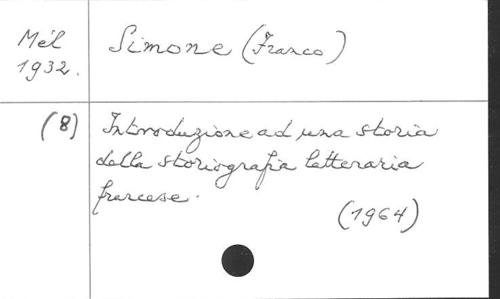 Mél
1932.
Simone (Franco)
(8)
Introduzione ad una storia
della storiografia letteraria
francese.
(1964)